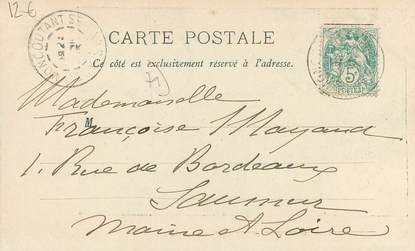 12-6
MONCOUTANT
CARTE POSTALE
Ce côté est exclusivement réservé à l'adresse.
M
Mademoiselle
Françoise Mayaud
1. Rue de Bordeaux
Saumur
Maine et Loire
5